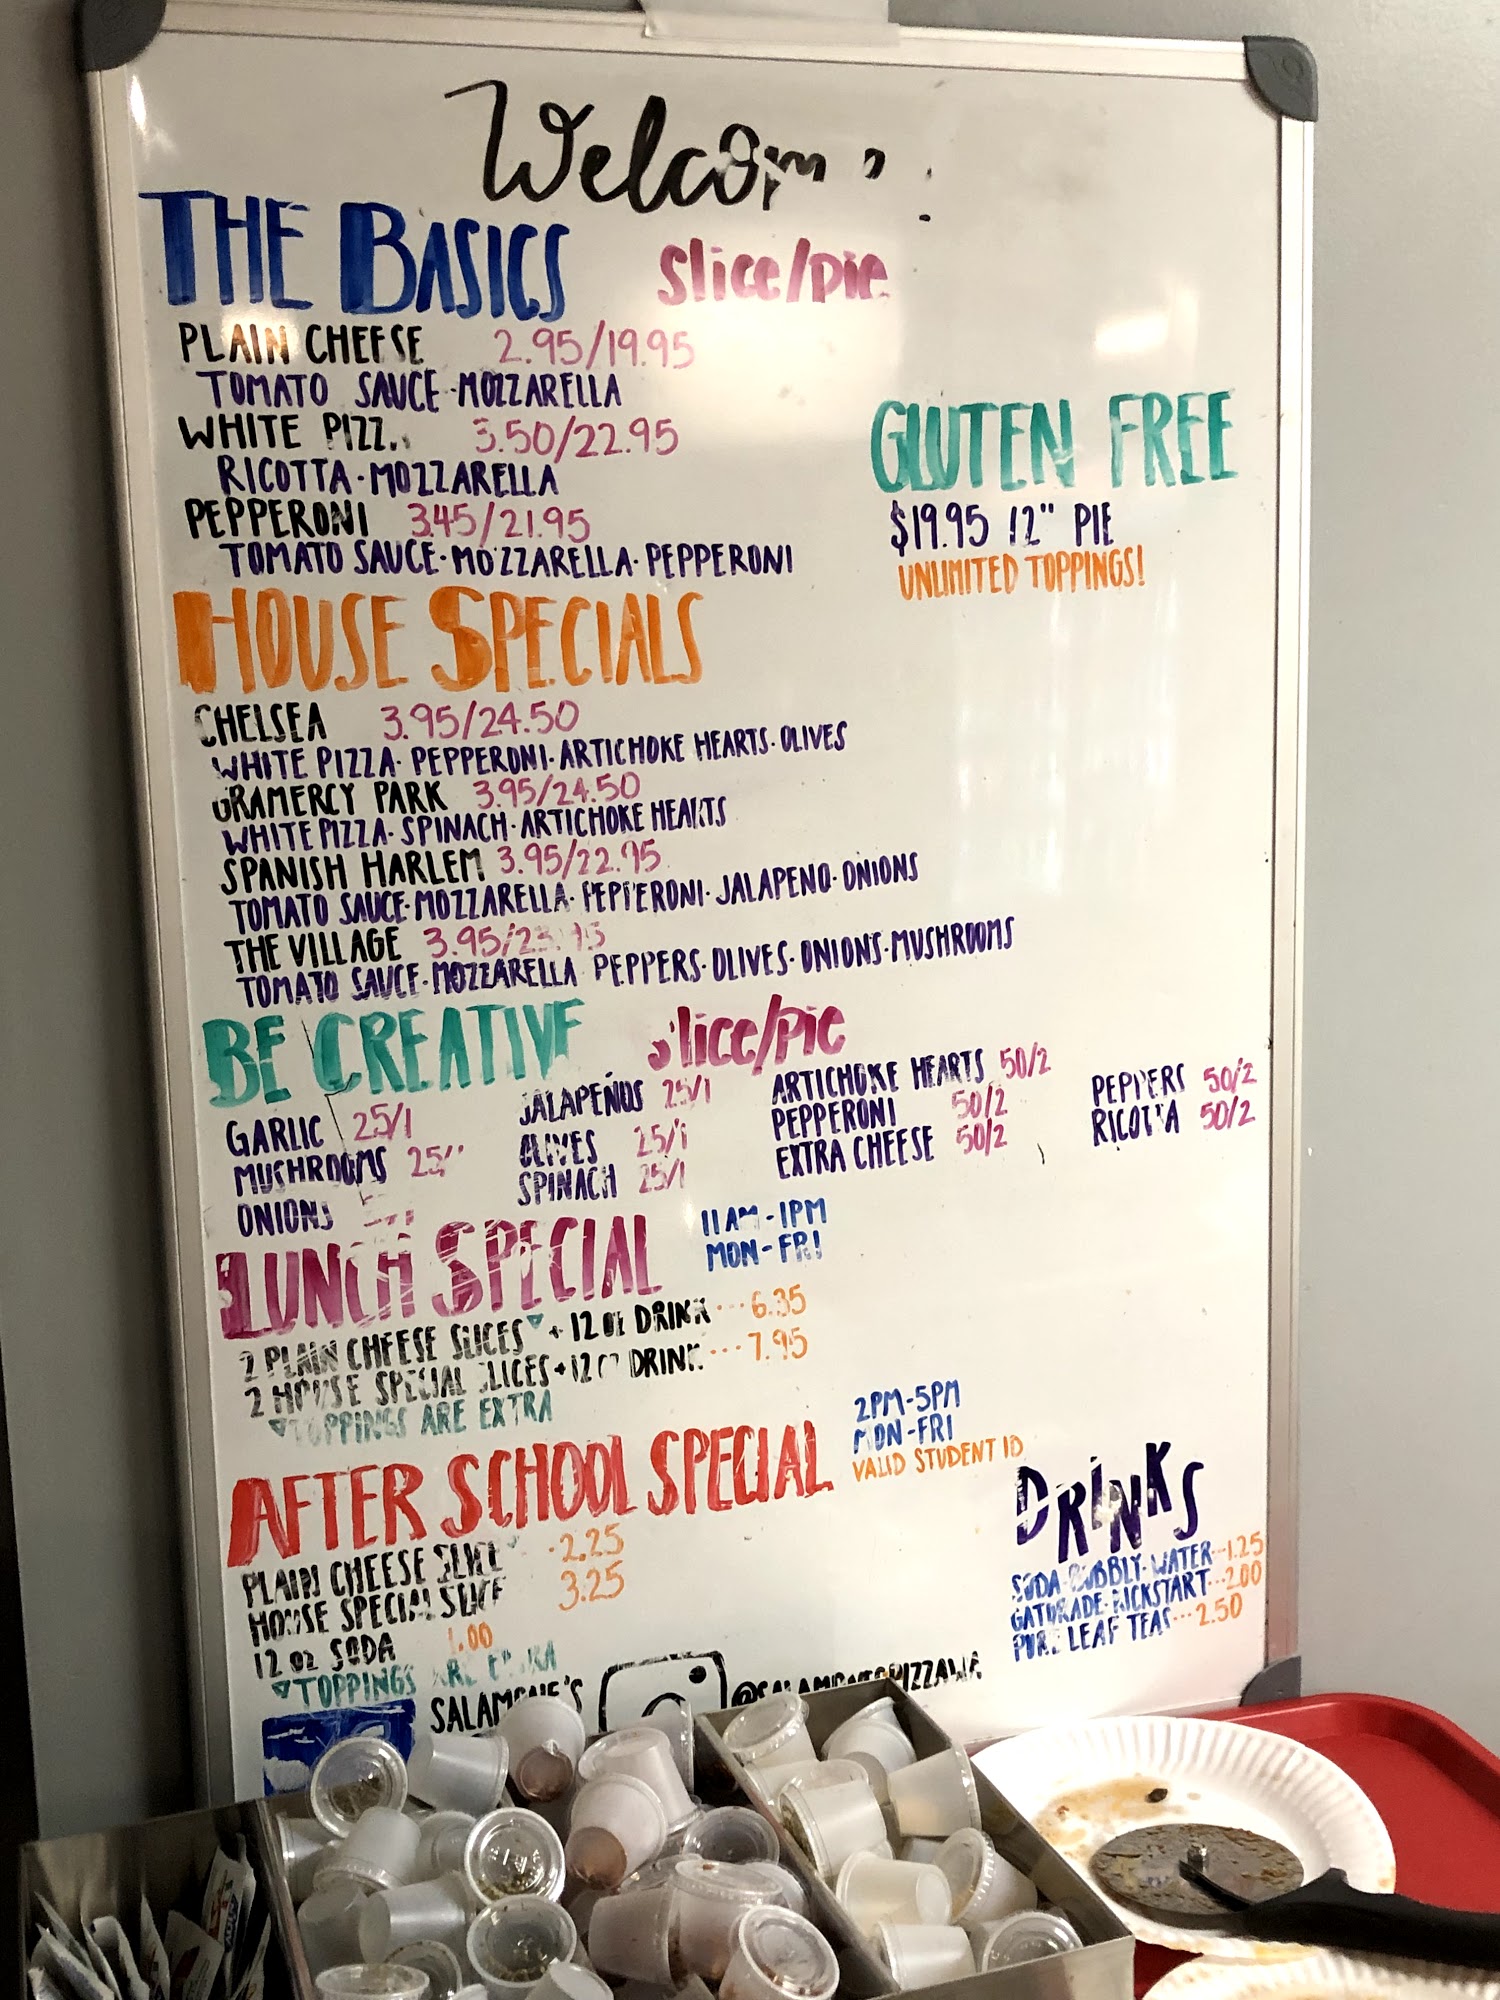 Welcom
THE BASICS slice/pie
PLAIN CHEESE 2.95/19.95
TOMATO SAUCE·MOZZARELLA
WHITE PIZZ 3.50/22.95
RICOTTA·MOZZARELLA
PEPPERONI 3.45/21.95
TOMATO SAUCE·MOZZARELLA·PEPPERONI
GLUTEN FREE
$19.95 12" PIE
UNLIMITED TOPPINGS!
HOUSE SPECIALS
CHELSEA 3.95/24.50
WHITE PIZZA·PEPPERONI·ARTICHOKE HEARTS·OLIVES
GRAMERCY PARK 3.95/24.50
WHITE PIZZA·SPINACH·ARTICHOKE HEARTS
SPANISH HARLEM 3.95/22.95
TOMATO SAUCE·MOZZARELLA·PEPPERONI·JALAPENO·ONIONS
THE VILLAGE
TOMATO SAUCE·MOZZARELLA PEPPERS·OLIVES·ONIONS·MUSHROOMS
BE CREATIVE slice/pie
GARLIC 25/1
MUSHROOMS
ONIONS
JALAPEÑOS 25/1
OLIVES 25/1
SPINACH 25/1
ARTICHOKE HEARTS 50/2
PEPPERONI 50/2
EXTRA CHEESE 50/2
PEPPERS 50/2
RICOTTA 50/2
LUNCH SPECIAL
11AM-1PM
MON-FRI
2 PLAIN CHEESE SLICES + 12 OZ DRINK ··· 6.35
2 HOUSE SPECIAL SLICES + 12 OZ DRINK ··· 7.95
TOPPINGS ARE EXTRA
AFTER SCHOOL SPECIAL
2PM-5PM
MON-FRI
VALID STUDENT ID
PLAIN CHEESE SLICE 2.25
HOUSE SPECIAL SLICE 3.25
12 OZ SODA 1.00
TOPPINGS ARE EXTRA
DRINKS
SODA·BUBBLY·WATER···1.25
GATORADE·KICKSTART···2.00
PURE LEAF TEAS···2.50
SALAMONE'S @SALAMONESPIZZAWA